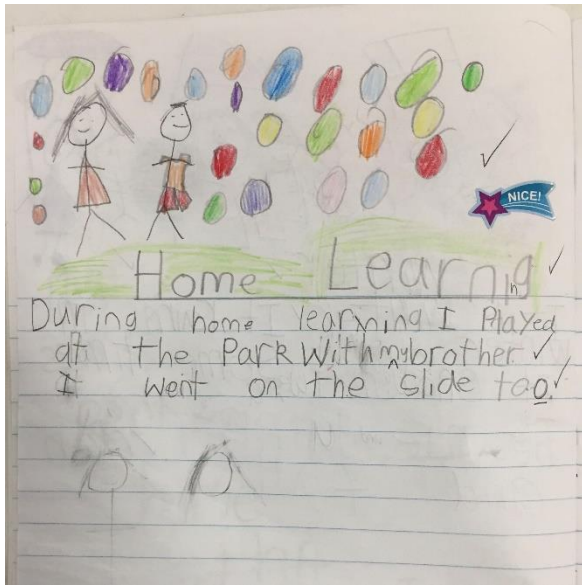 NICE!
Home Learning
During home learning I Played
at the Park With my brother
I went on the slide too.